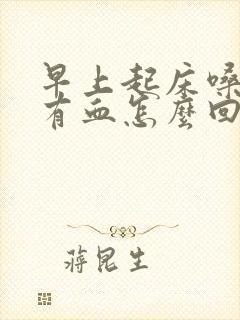 早上起床嗓
有血怎麼回
蔣昆生